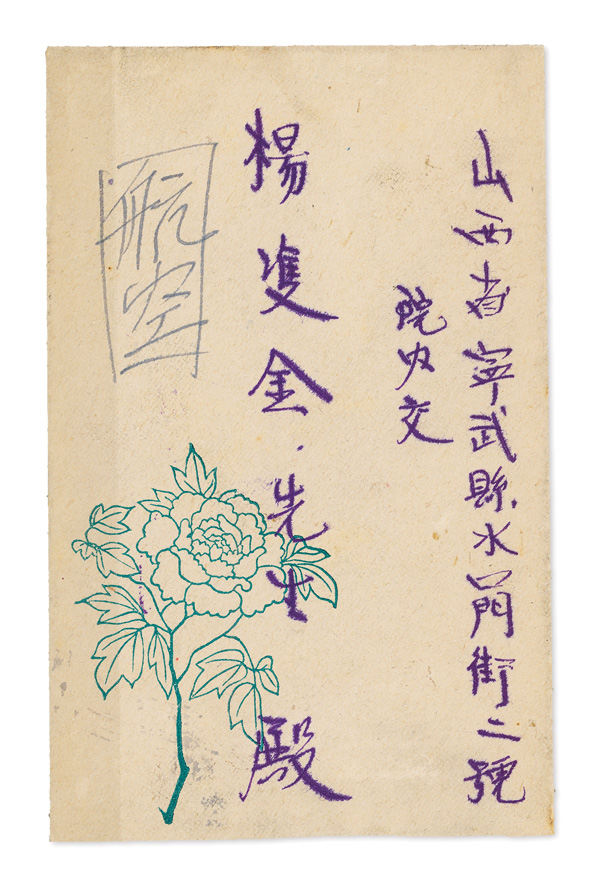 山西省寧武縣水門街二號
院內交
楊隻金先生 殿
航空